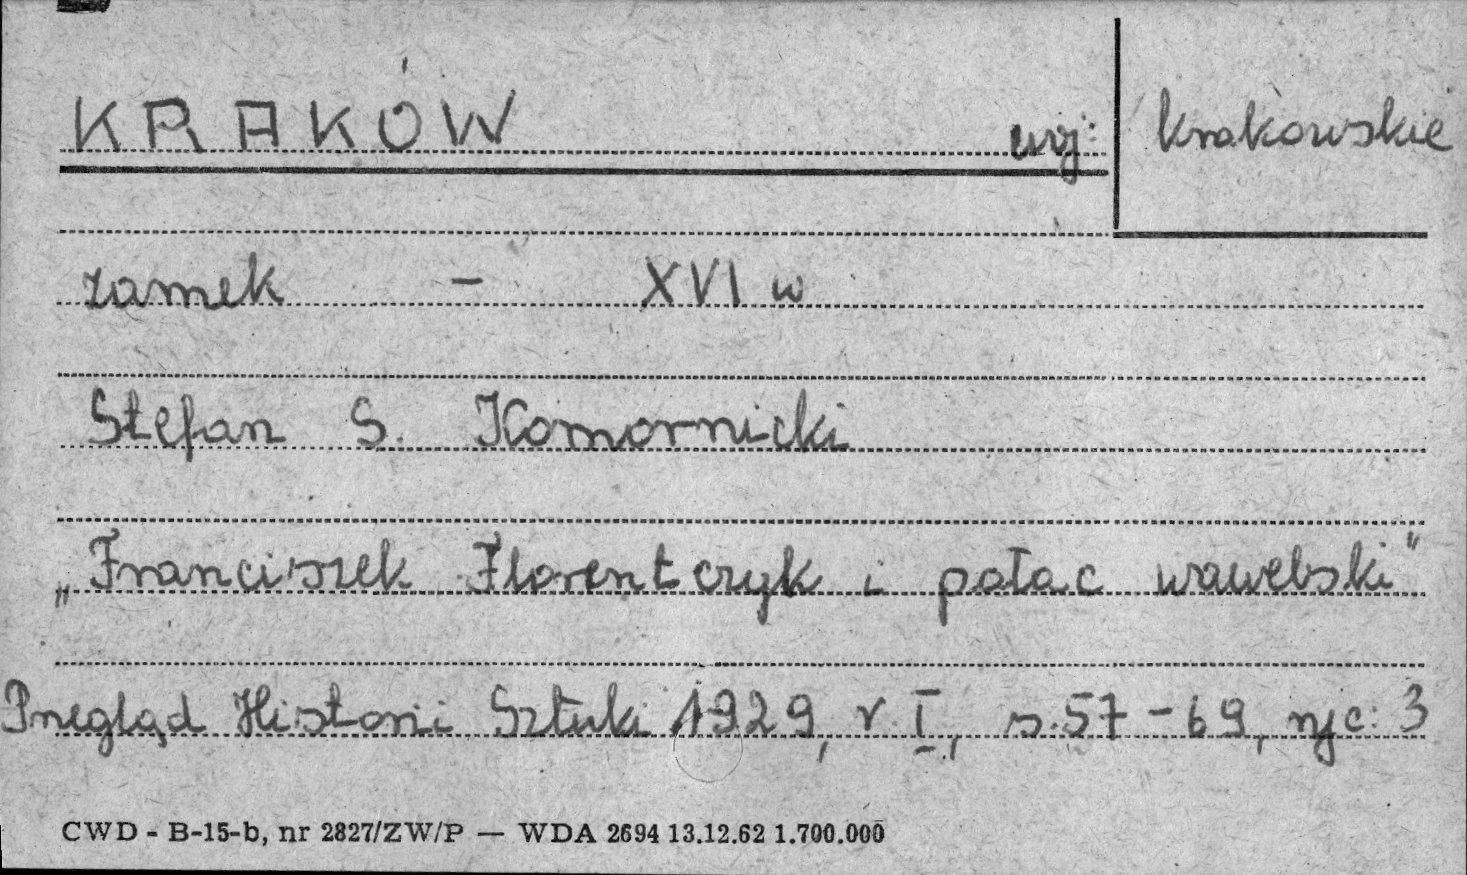 KRAKÓW woj: krakowskie
zamek - XVI w
Stefan S. Komornicki
„Franciszek Florentczyk i pałac wawelski"
Przegląd Historii Sztuki 1929, r. I, s. 57-69, ryc: 3
CWD - B-15-b, nr 2827/ZW/P — WDA 2694 13.12.62 1.700.000